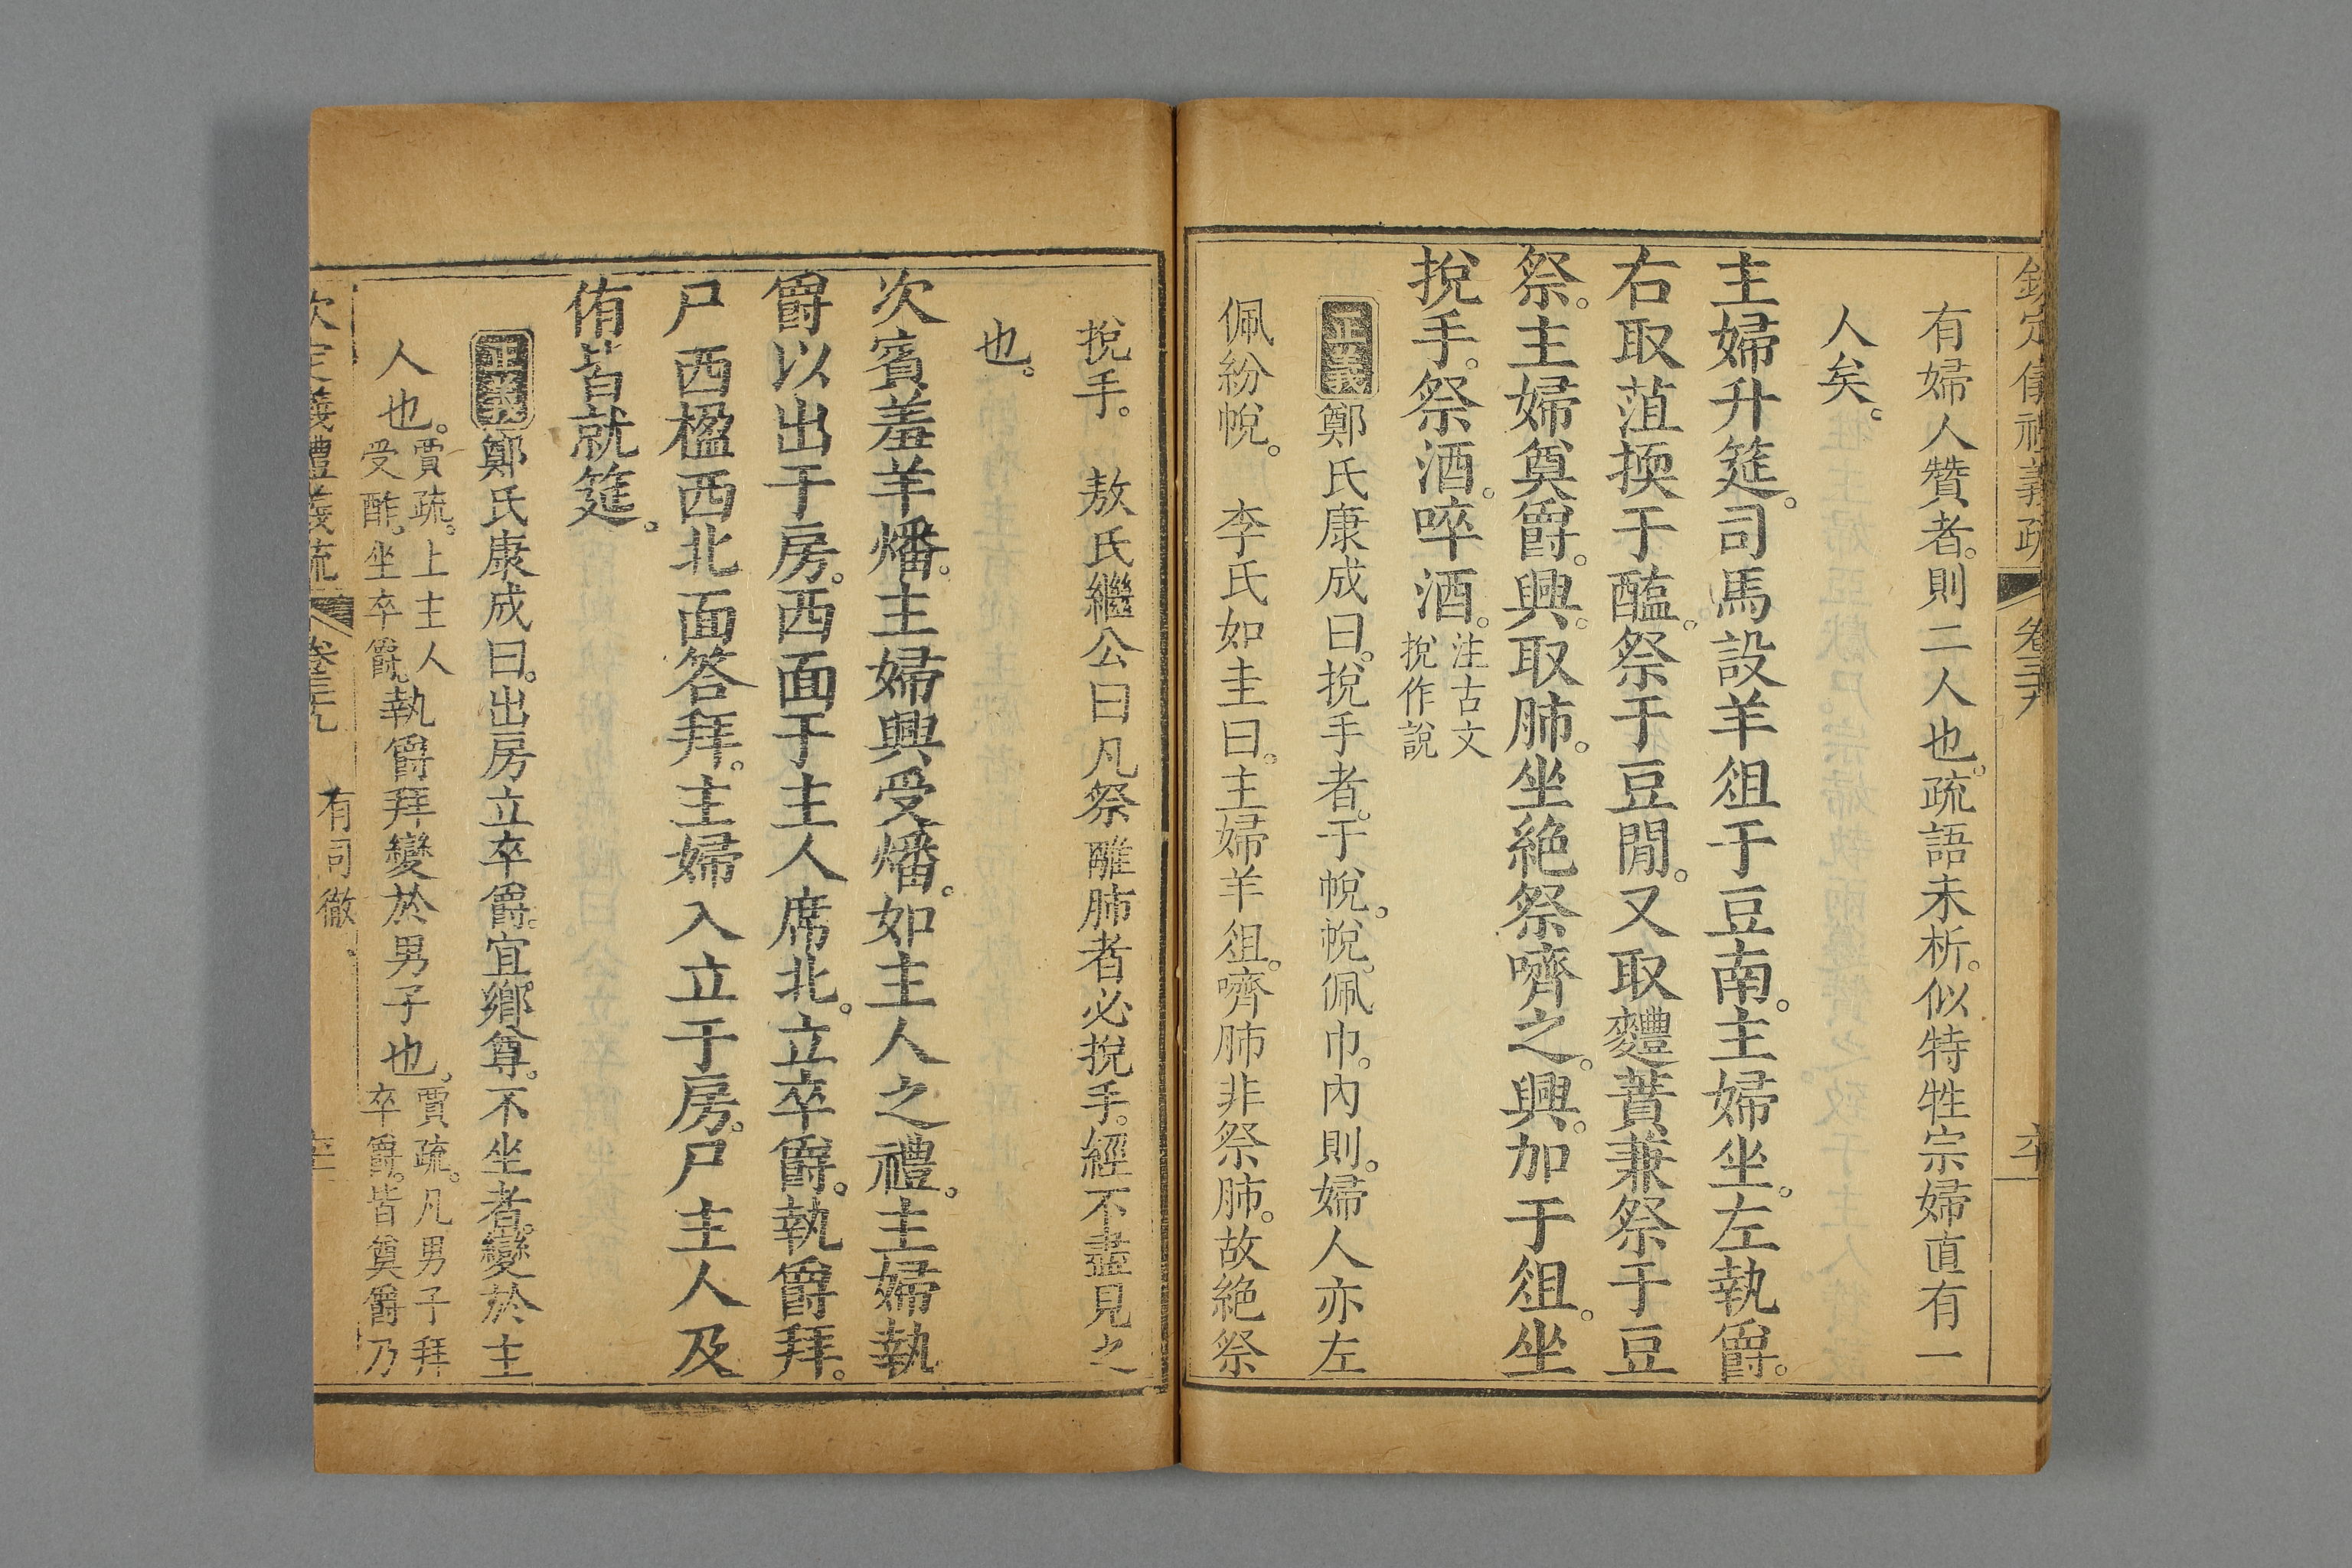 欽定儀禮義疏 卷三十九 
有婦人贊者。則二人也。疏語未析。似特牲宗婦直有一
人矣。
主婦升筵。司馬設羊俎于豆南。主婦坐。左執爵。
右取菹㨎于醢。祭于豆閒。又取麷蕡兼祭于豆
祭。主婦奠爵。興。取肺。坐絕祭嚌之。興。加于俎。坐
挩手。祭酒。啐酒。
注古文
挩作說
正義鄭氏康成曰。挩手者。于帨。帨。佩巾。內則。婦人亦左
佩紛帨。 李氏如圭曰。主婦羊俎。嚌肺非祭肺。故絕祭
挩手。 敖氏繼公曰凡祭離肺者必挩手。經不盡見之
也。
次賓羞羊燔。主婦興受燔。如主人之禮。主婦執
爵以出于房。西面于主人席北。立卒爵。執爵拜。
尸西楹西北面答拜。主婦入立于房。尸主人及
侑皆就筵。
正義鄭氏康成曰。出房立卒爵。宜鄉尊。不坐者。變於主
人也。
賈疏。上主人
受酢。坐卒爵。
執爵拜變於男子也。
賈疏。凡男子拜
卒爵。皆奠爵乃
欽定義禮義疏 卷三十九 有司徹